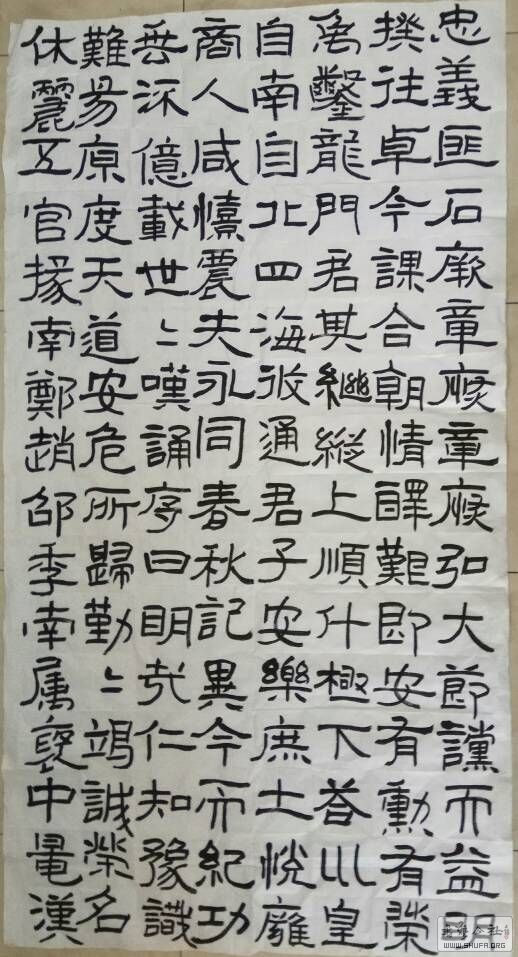 忠義匪石厥章恢章恢弘大節讜而益明
揆往卓今謀合朝情醳艱即安有勳有榮
禹鑿龍門君其繼縱上順斗極下荅巛皇
自南自北四海攸通君子安樂庶士悅廱
商人咸憘農夫永同春秋記異今而紀功
垂流億載世〻嘆誦序曰明哉仁知豫識
難易原度天道安危所歸勤〻竭誠榮名
休麗五官掾南鄭趙邵季南属襃中鼂漢
WWW.SHUFA.ORG